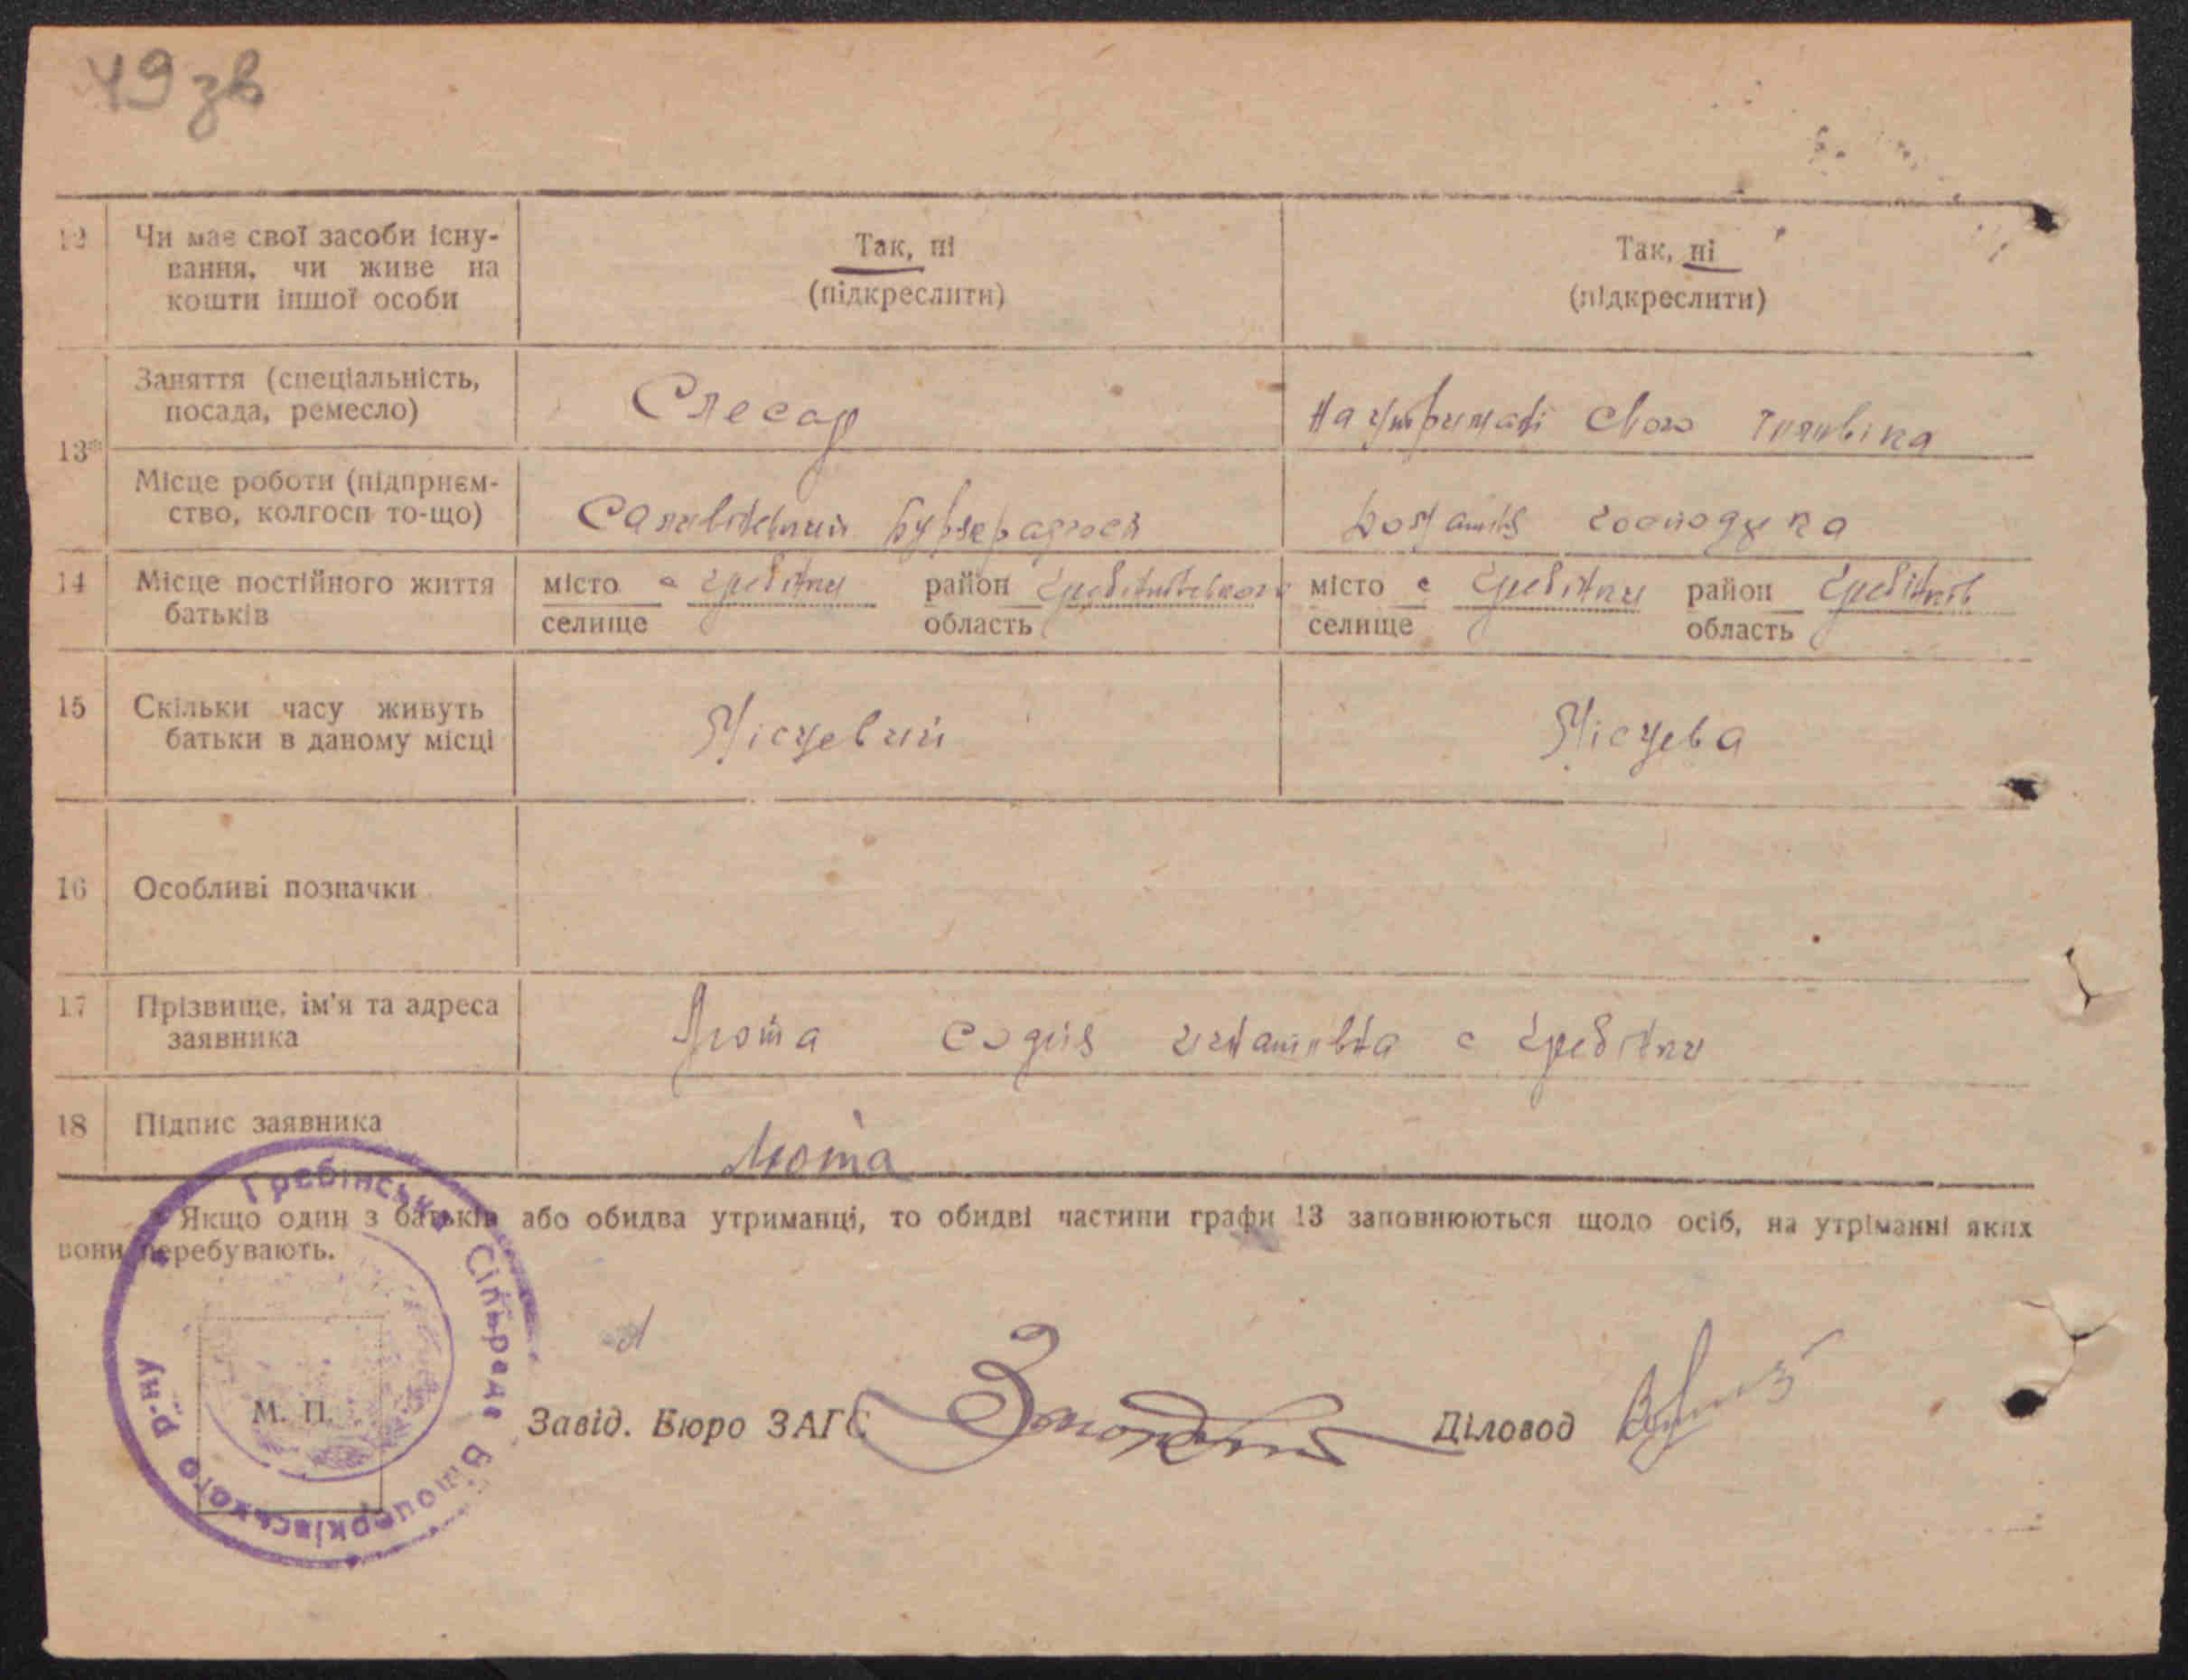 49 зв
12 Чи має свої засоби існу-
вання, чи живе на
кошти іншої особи
Так, ні
(підкреслити)
Так, ні
(підкреслити)
13* Заняття (спеціальність,
посада, ремесло)
Слесар
На утримані свого чоловіка
Місце роботи (підприєм-
ство, колгосп то-що)
Саливінський
Домашня господурка
14 Місце постійного життя
батьків
місто с Гребінки район Гребінківського
селище область
місто с Гребінки район Гребінків
селище область
15 Скільки часу живуть
батьки в даному місці
Місцевий
Місцева
16 Особливі позначки
17 Прізвище, ім'я та адреса
заявника
Люта Софія Игнатівна с Гребінки
18 Підпис заявника
Люта
* Якщо один з батьків або обидва утриманці, то обидві частини графи 13 заповнюються щодо осіб, на утріманні яких
вони перебувають.
Гребінська Сільрада Білоцерківського р-ну
М. П.
Завід. Бюро ЗАГС
Діловод